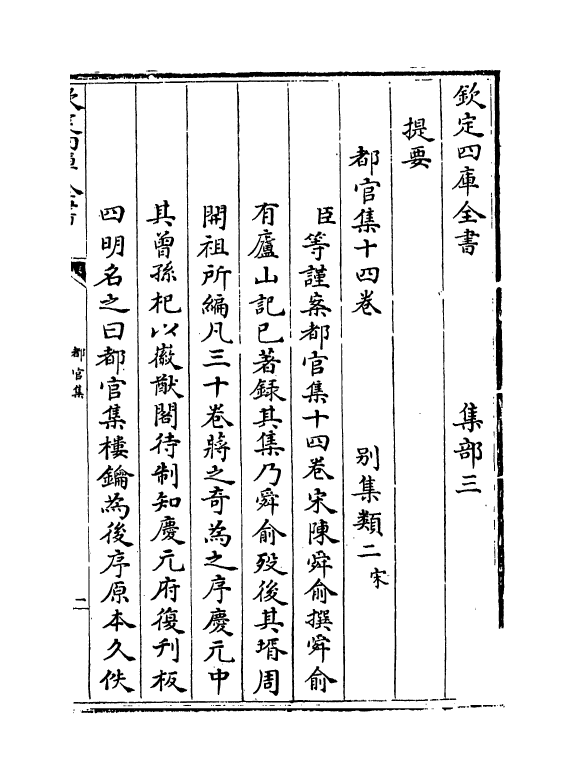 欽定四庫全書　集部三
提要
都官集十四卷　別集類二宋
臣等謹案都官集十四卷宋陳舜俞撰舜俞
有廬山記已著録其集乃舜俞歿後其壻周
開祖所編凡三十卷蔣之奇為之序慶元中
其曾孫杞以徽猷閣待制知慶元府復刋板
四明名之曰都官集樓鑰為後序原本久佚
欽定四庫全書
都官集
二